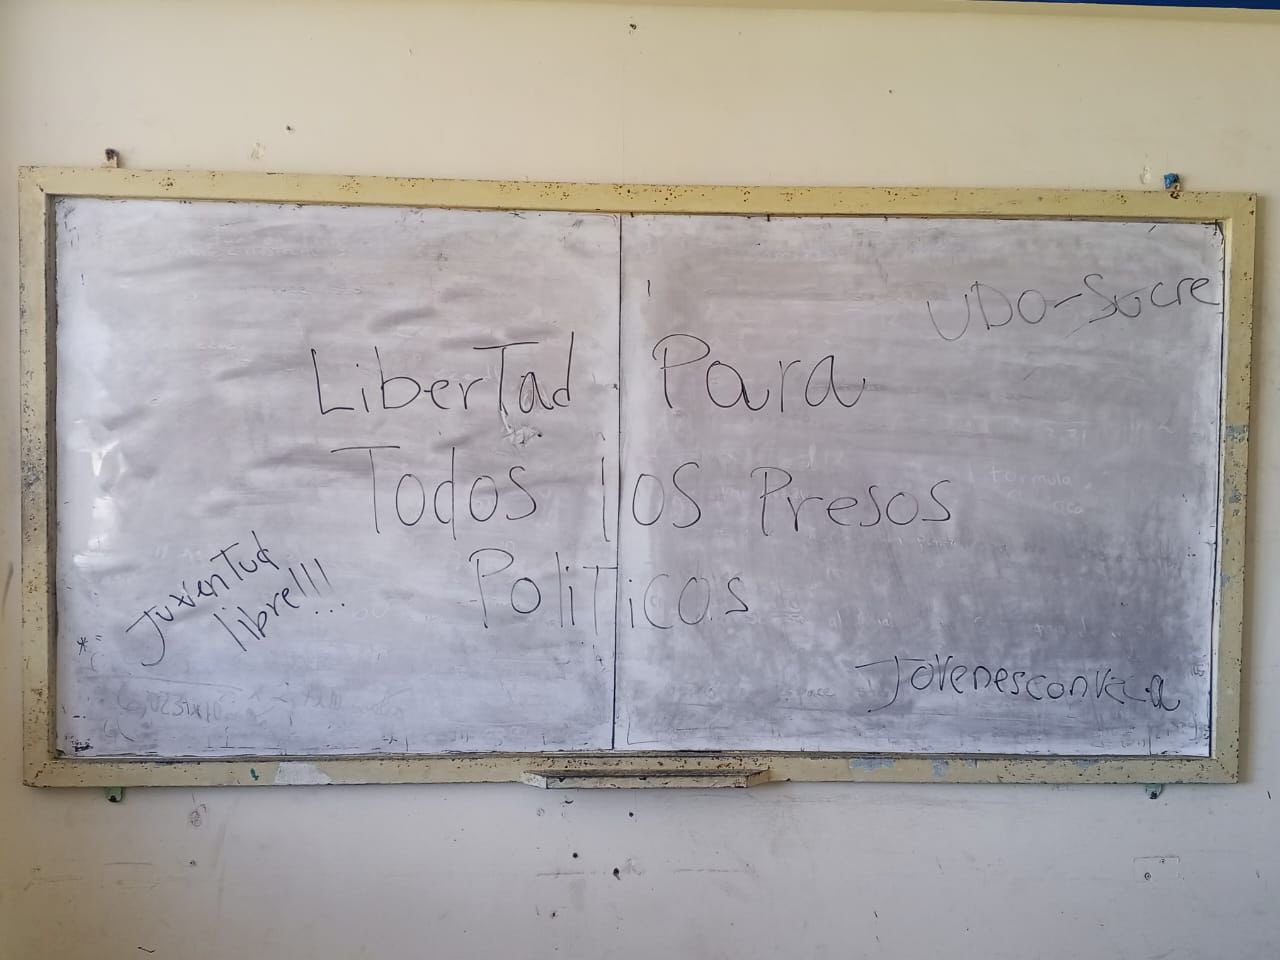 UDO-Sucre
LiberTad Para
Todos los Presos
PoliTicos
Juventud
libre!!!...
Jovenesconvzla
formula